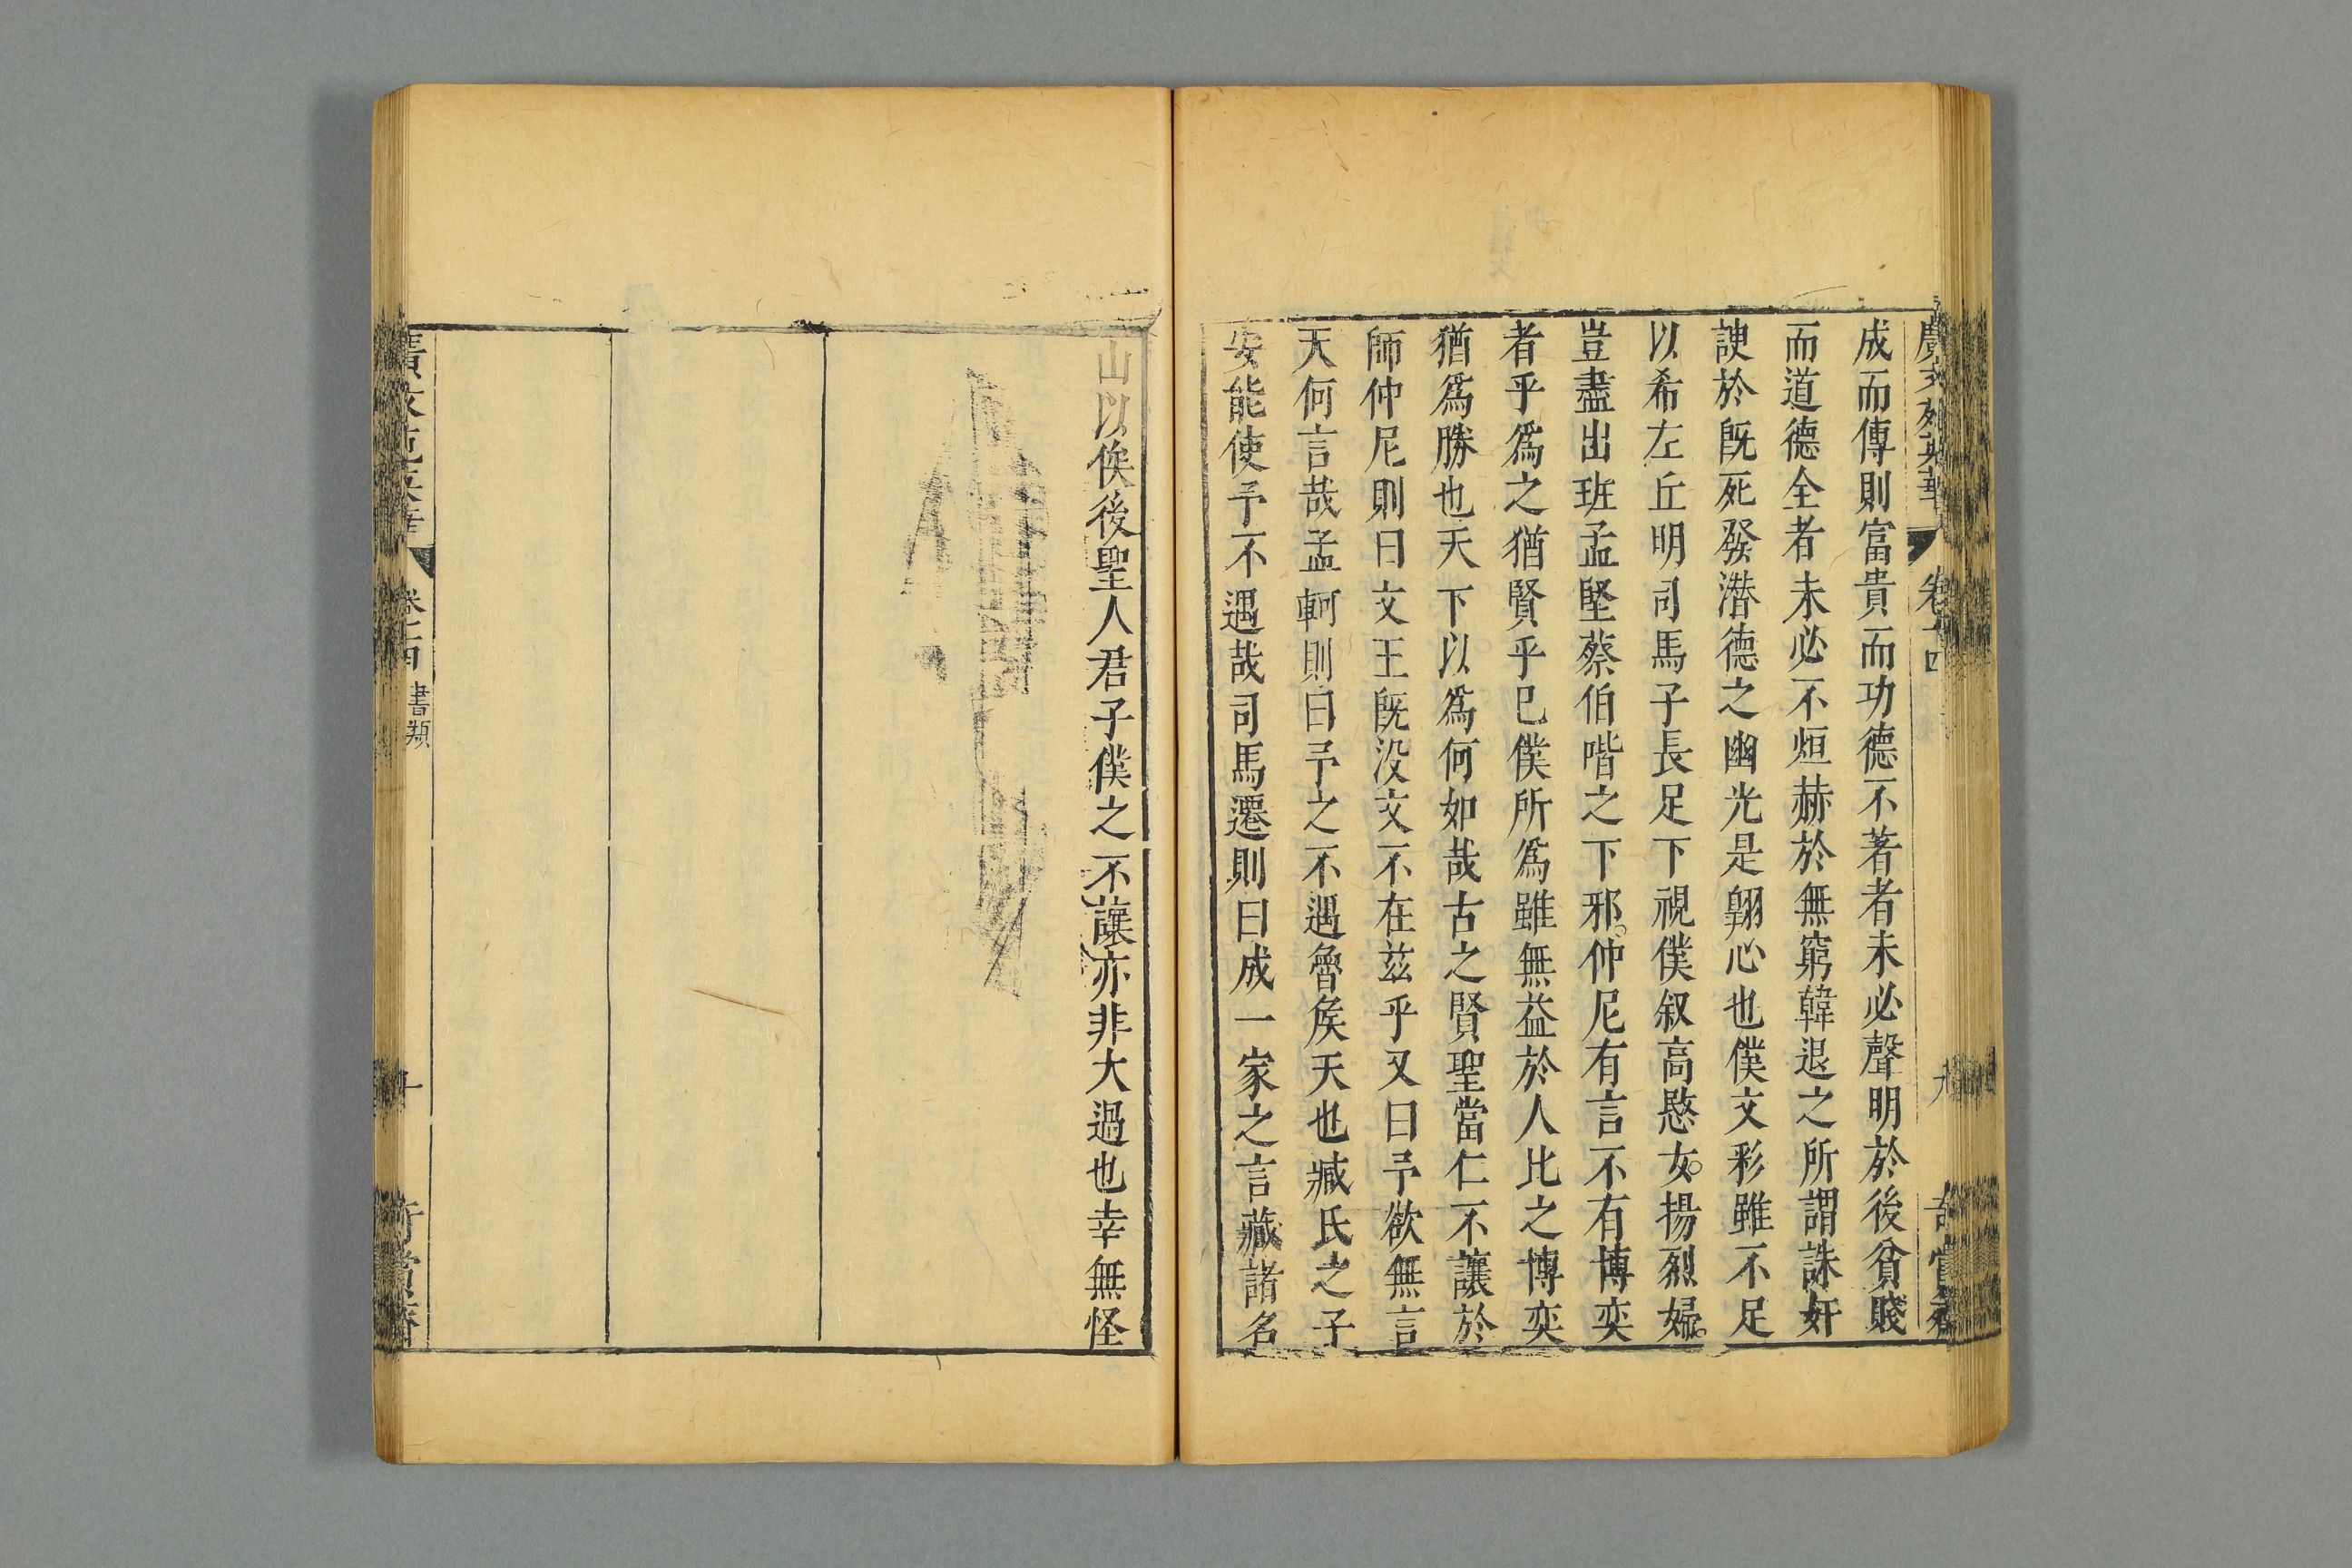 廣文苑英華
卷十四
九
成而傳則富貴而功德不著者未必聲明於後貧賤
而道德全者未必不烜赫於無窮韓退之所謂誅奸
諛於旣死發潛德之幽光是翱心也僕文彩雖不足
以希左丘明司馬子長足下視僕叙高愍女揚烈婦
豈盡出班孟堅蔡伯喈之下邪仲尼有言不有博奕
者乎爲之猶賢乎巳僕所爲雖無益於人比之博奕
猶爲勝也天下以爲何如哉古之賢聖當仁不讓於
師仲尼則曰文王旣没文不在茲乎又曰予欲無言
天何言哉孟軻則曰予之不遇魯矦天也臧氏之子
安能使予不遇哉司馬遷則曰成一家之言藏諸名
山以俟後聖人君子僕之不讓亦非大過也幸無怪
廣文苑英華
書類
十